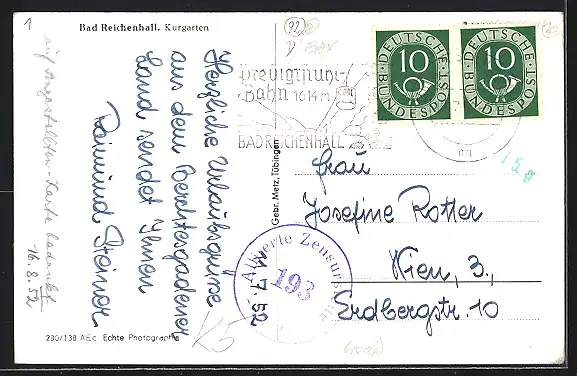 1
Bad Reichenhall. Kurgarten
Herzliche Urlaubsgrüsse
aus dem Berchtesgadener
Land sendet Ihnen
Raimund Steiner
16.8.52
280/138 AEc Echte Photographie
Gebr. Metz, Tübingen
92
Predigtstuhl-
Bahn 1614 m
BAD REICHENHALL
DEUTSCHE BUNDESPOST
10
DEUTSCHE BUNDESPOST
10
Frau
Josefine Rotter
Wien, 3.,
Erdbergstr. 10
Alliierte Zensurstelle
193
11.7.52
K5